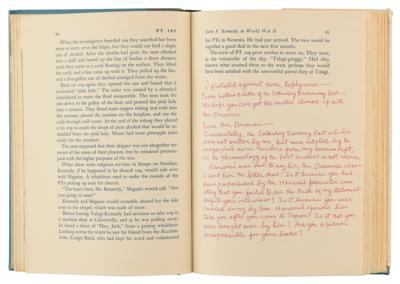 60 PT 109
When the scroungers boarded 109 they searched her from
stem to stern, even the bilges, but they could not find a single
can of alcohol. After the
into a skiff and rowed up the line of bushes a short distance
until they came to a cork floating on the surface. They lifted
the cork, and a line came up with it. They pulled up the line,
and a five-gallon can of alcohol emerged from the water.
Back on 109 again they opened the can and found that it
contained "pink lady." The color was caused by a chemical
introduced to make the fluid nonpotable. The men took the
can down to the galley of the boat and poured the pink lady
into a canteen. They fitted some copper tubing and coils into
the canteen, placed the canteen on the hotplate, and ran the
coils through cold water. At the end of the tubing they placed
a cup to catch the drops of pure alcohol that would be
distilled from the pink lady. Mauer had some pineapple juice
ready for the occasion.
The men supposed that their skipper was not altogether unaware
of the ease of their pleasure, but he remained preoccupied
with the higher purposes of the war.
When there were religious services in Sesapi on Sunday,
Kennedy, if he happened to be aboard 109, would ride over
with Maguire. A whaleboat used to make the rounds of the
PTs picking up men for church.
"The boat's here, Mr. Kennedy," Maguire would call. "Are
you going to mass?"
Kennedy and Maguire would scramble aboard for the ride
over to the chapel, which was made of straw.
Before leaving Tulagi Kennedy had occasion to take 109 to
a machine shop at Calvertville, and as he was pulling away,
he heard a shout of "Hey, Jack," from a passing whaleboat.
Looking across the water he saw his friend from the Rochambeau,
Ensign Reed, who had kept his word and volunteered
John F. Kennedy in World War II 61
for PTs in Noumea. He had just arrived. The two would be
together a good deal in the next few months.
The crew of PT 109 grew restless to move on. They were,
in the vernacular of the day, "Tulagi-groggy." Had they
known what awaited them to the west, perhaps they would
have been satisfied with the uneventful patrol duty at Tulagi.
I protested against
From Letters Editor of the Saturday Evening Post-
We hope you can get this matter cleared up with
Mr. Donovan.
Dear Mr. Donovan -
Incidentally, the Saturday Evening Post articles
were not written by me, but were edited by the
as the phraseology of the Post account is not mine.
Hanami was lying to
I sent him the letter that: Is it because you had
been prepossessed by Mr. Hanami's
that you failed to see the truth of my statement
despite your interview? Is it because you were
told you after you came to Japan? Is it that you
were bought over by him? Are you a person
irresponsible for your books?